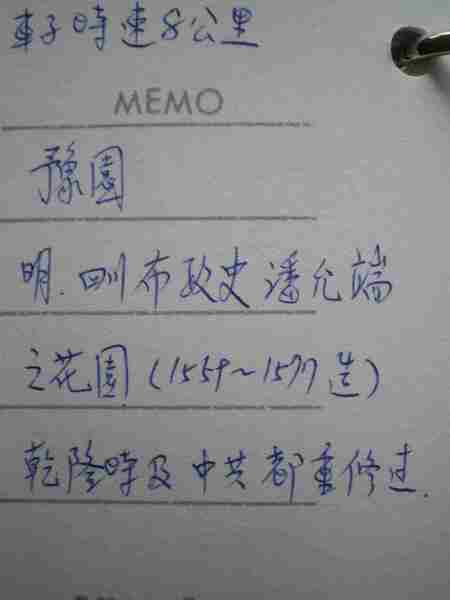 車子時速8公里
MEMO
豫園
明.四川布政史潘允端
之花園(1559~1577造)
乾隆時及中共都重修过.